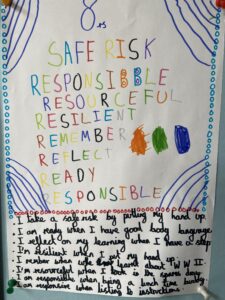 8 rs
SAFE RISK
RESPONSIBLE
RESOURCEFUL
RESILIENT
REMEMBER
REFLECT
READY
RESPONSIBLE
I take a safe risk by putting my hand up.
I am ready when I have good body language.
I reflect on my learning when I have a
I'm resilient when I get
I remember what about W W II.
I'm resourceful when I look in the
I am responsible when being a lunch time buddy.
I am responsive when listing to instructions.